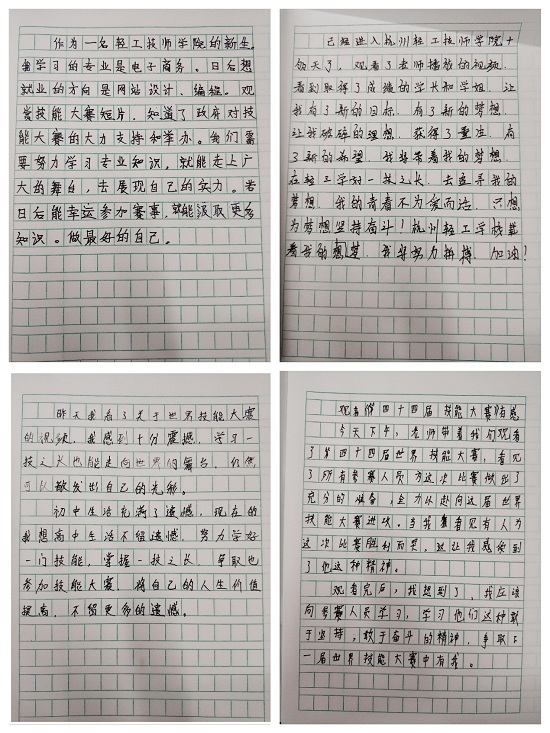 作为一名轻工技师学院的新生。
我学习的专业是电子商务。日后想
就业的方向是网站设计、编程。观
赏技能大赛短片，知道了政府对技
能大赛的大力支持和举办。我们需
要努力学习专业知识，就能走上广
大的舞台，去展现自己的实力。若
日后能幸运参加赛事，就能汲取更多
知识。做最好的自己。
已经进入杭州轻工技师学院十
余天了，观看了老师播放的视频，
看到取得了成绩的学长和学姐，让
我有了新的目标，有了新的梦想，
让我破碎的理想，获得了重生，有
了新的希望，我将带着我的梦想，
在轻工学好一技之长，去追寻我的
梦想，我的青春不为爱而活，只想
为梦想坚持奋斗！杭州轻工学院载
着我的想梦，我将努力拼搏，加油！
昨天我看了关于世界技能大赛
的视频，我感到十分震撼，学习一
技之长也能走向世界的舞台，仍然
可以散发出自己的光彩。
初中生活充满了遗憾，现在的
我想高中生活不留遗憾，努力学好
一门技能，掌握一技之长，争取也
参加技能大赛，将自己的人生价值
提高，不留更多的遗憾。
观看第四十四届技能大赛有感
今天下午，老师带着我们观看
了第四十四届世界技能大赛，看见
了所有参赛人员为这次比赛做出了
充分的准备，全力以赴向这届世界
技能大赛进攻。当我看见有人为
这次比赛胜利而哭，这让我感受到
了他这种精神。
观看完后，我想到了，我应该
向参赛人员学习，学习他们这种敢
于坚持，敢于奋斗的精神，争取下
一届世界技能大赛中有我。